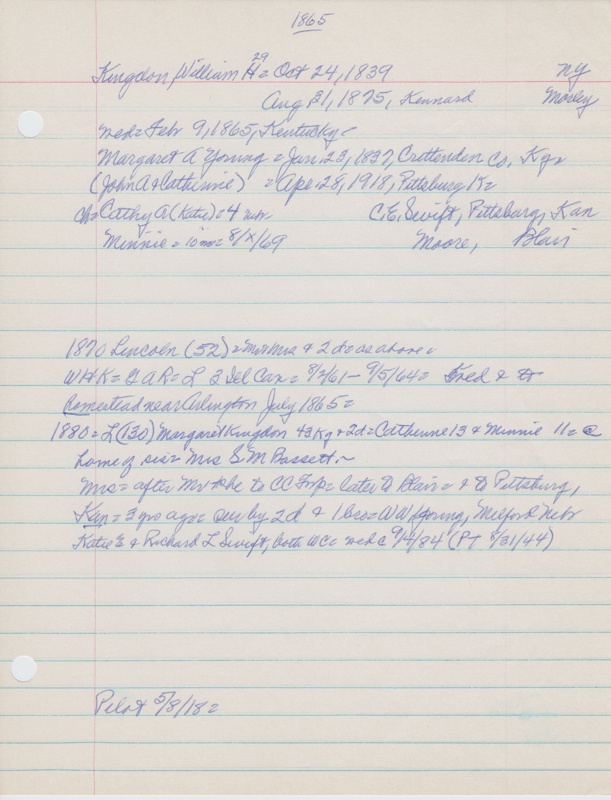 1865
29
Kingdon, William H = Oct 24, 1839 NY
Aug 31, 1875, Kennard Morley
wed = Feb 9, 1865, Kentucky =
Margaret A Young = Jan. 23, 1837, Crettenden Co, Ky =
(John A & Catherine) = Apr. 28, 1918, Pittsburg K =
ch = Cathy A (Katie) = 4 nebr C.E. Swift, Pittsburg, Kan
Minnie = 10 mo = 8/X/69 Moore, Blair
1870 Lincoln (52) = Mr & Mrs & 2 d = as above =
WHK = GAR = L 3 Del Cav = 8/2/61 - 9/5/64 = &
Homestead near Arlington July 1865 =
1880 = L (130) Margaret Kingdon 43 Ky & 2d = Catherine 13 & Minnie 11 = @
home of sis = Mrs S M Bassett. ~
Mrs = after Mr & she to CC Twp = later to Blair = & to Pittsburg,
Kan = 3 yrs ago = sur by 2d & 1 bro = WW Young, Milford Nebr
Katie & Richard L Swift, both WC = wed @ 9/4/84 (PT 8/31/44)
Pilot 5/8/18 =